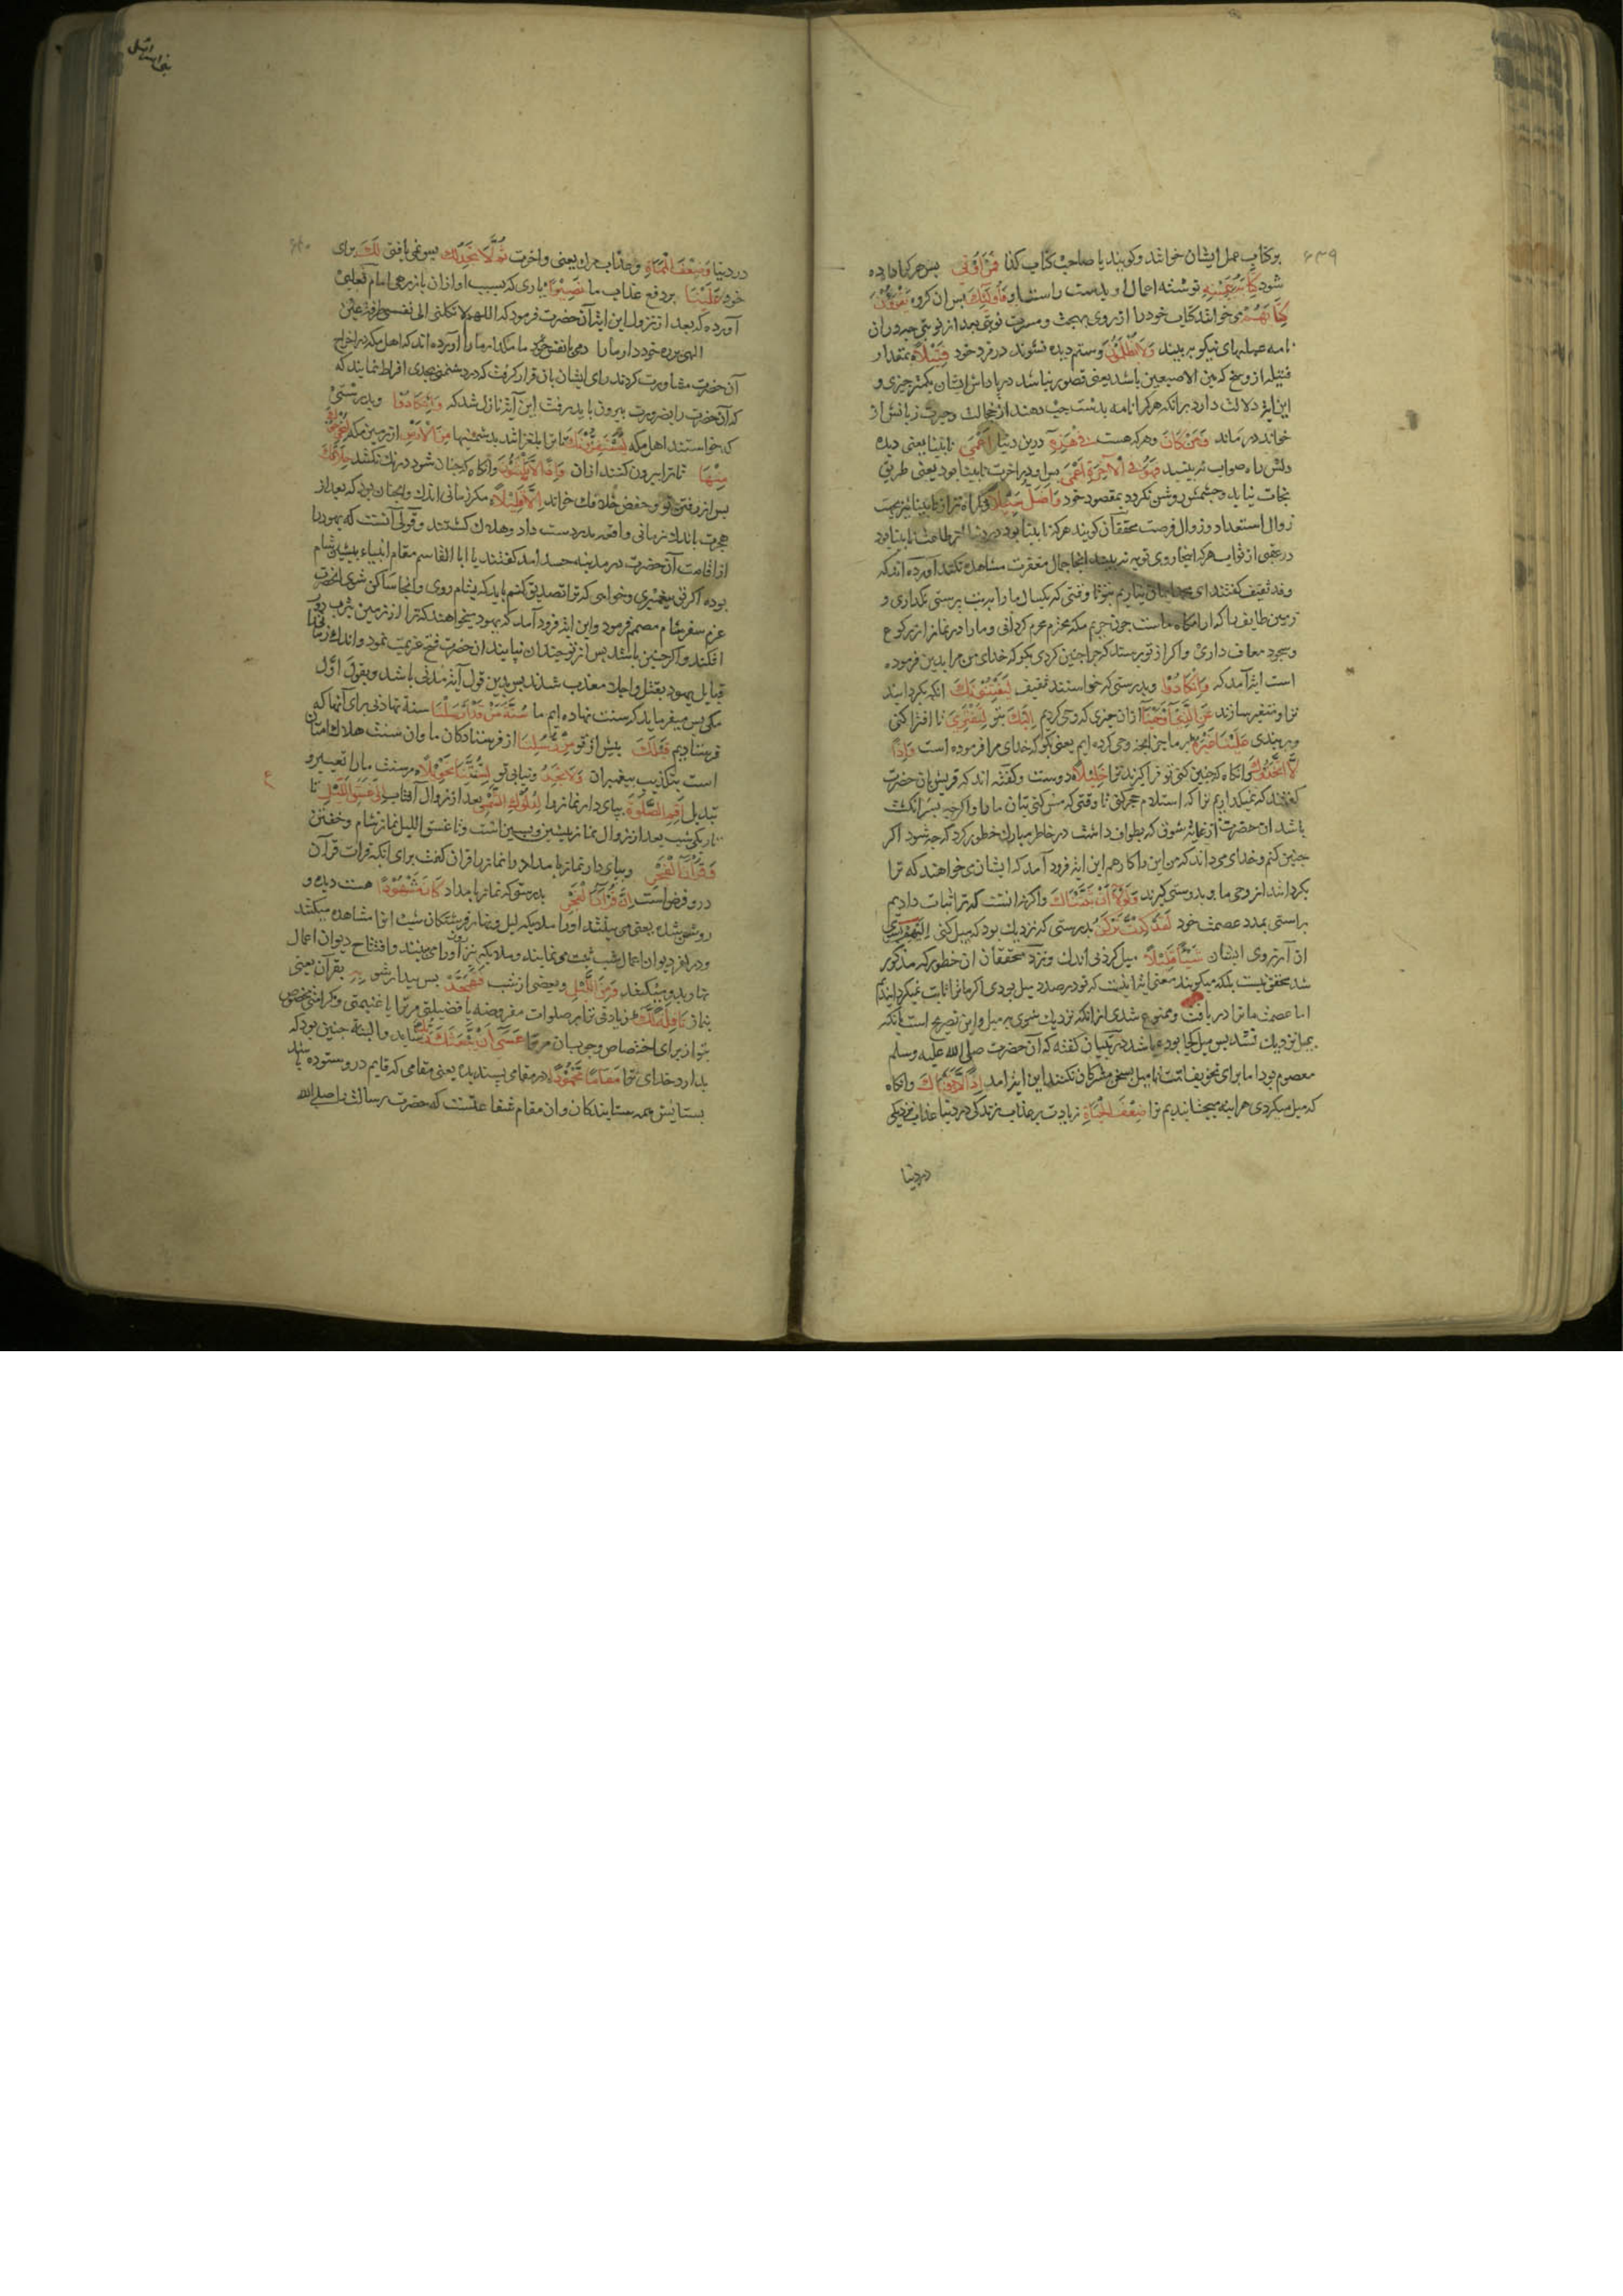 ۶۳۹
بر کتاب عمل ایشان خوانند و کویند یا صاحب کتاب کذا فَمَنْ اُوتِیَ پس هر کرا داده
شود کِتَابَهُ بِیَمِینِهِ نوشته اعمال او بدست راست او فَاُولٰئِکَ پس ان کروه یَقْرَؤُنَ
کِتَابَهُمْ می خوانند کتاب خود را از روی بهجت و مسرت نوبتی بعد از نوبتی چه در ان
نامه عملهای نیکو بینند وَلَا یُظْلَمُونَ و ستم دیده نشوند در مزد خود فَتِیلًا بمقدار
فتیله از وسخ که بین الاصبعین باشد یعنی قصور نباشد در پاداش ایشان بکمتر چیزی و
این ایة دلالت دارد برانکه هر کرا نامه بدست چپ دهند از خجالت و حیرت زبانش از
خواندن درماند وَمَنْ کَانَ و هر که هست فِی هٰذِهِ درین دنیا اَعْمٰی نابینا یعنی دیده
دلش راه صواب نه بیند فَهُوَ فِی الْاٰخِرَةِ اَعْمٰی پس او در اخرت نابینا بود یعنی طریق
نجات نیابد و چشمش روشن نکردد بمقصود خود وَاَضَلُّ سَبِیلًا و کمراه تر از نابینا بجهت
زوال استعداد و زوال فرصت محققان کویند هر که نابینا بود در دنیا از طاعت نابینا بود
در عقبی از ثواب هر که اینجا روی توبه نه بیند انجا جمال مغفرت مشاهده نکند اورده اند که
وفد ثقیف کفتند ای محمد ایمان نیاریم بتو تا وقتی که یکسال ما را بت پرستی بکذاری و
زمین طایف را که ارامکاه ماست چون حریم مکه محترم محرم کردانی و ما را در نماز از رکوع
و سجود معاف داری و اکر از تو پرسند که چرا چنین کردی بکو که خدای من مرا بدین فرموده
است ایة آمد که وَاِنْ کَادُوا و بدرستی که خواستند ثقیف لَیَفْتِنُونَکَ انکه بکردانند
ترا و متغیر سازند عَنِ الَّذِی اَوْحَیْنَا از ان چیزی که وحی کردیم اِلَیْکَ بتو لِتَفْتَرِیَ تا افترا کنی
و بربندی عَلَیْنَا غَیْرَهُ بر ما جز انچه وحی کرده ایم یعنی بکو که خدای مرا فرموده است وَاِذًا
لَاتَّخَذُوکَ و انکاه که چنین کنی تو فرا کیرند ترا خَلِیلًا دوست و کفته اند که قریش بان حضرت
کفتند که نمیکذاریم ترا که استلام حجر کنی تا وقتی که مس کنی بتان ما را و اکر چه بسر انکشت
باشد ان حضرت از غایت شوقی که بطواف داشت در خاطر مبارک خطور کرد که چه شود اکر
چنین کنم و خدای می داند که من این را کارهم این ایة فرود آمد که ایشان می خواهند که ترا
بکردانند از وحی ما و بدوستی کیرند وَلَوْلَا اَنْ ثَبَّتْنَاکَ و اکر نه انست که ترا ثبات دادیم
براستی بمدد عصمت خود لَقَدْ کِدْتَ تَرْکَنُ بدرستی که نزدیک بود که میل کنی اِلَیْهِمْ بسوی
ان آرزوی ایشان شَیْئًا قَلِیلًا میل کردنی اندک و نزد محققان ان خطور که مذکور
شد محقق نیست بلکه میکویند معنی ایة انست که تو در صدد میل بودی اکر ما ترا ثابت نمیکردانیدیم
اما عصمت ما ترا دریافت و ممنوع شدی از انکه نزدیک شوی بر میل و این تصریح است بانکه
بمیل نزدیک نشد پس میل کجا بوده باشد در تبیان کفته که ان حضرت صلی الله علیه وسلم
معصوم بود اما برای تخویف امت تا میل بسخن مشرکان نکنند این ایة امد اِذًا لَاَذَقْنَاکَ و انکاه
که میل میکردی هراینه میچشانیدیم ترا ضِعْفَ الْحَیٰوةِ زیادت بر عذاب زندکی در دنیا عذاب نزدیکی
در دنیا
۶۴۰
در دنیا وَضِعْفَ الْمَمَاتِ و عذاب مرک یعنی و اخرت ثُمَّ لَا تَجِدُ لَکَ پس نمی یافتی لَکَ برای
خود عَلَیْنَا بر دفع عذاب ما نَصِیرًا یاری که بسبب او از ان باز رهی امام ثعلبی
آورده که بعد از نزول این ایة آن حضرت فرمود که اللهم لا تکلنی الی نفسی طرفة عین
الهی بره خود دار ما را دمی با نفس خود مکذار ما را آورده اند که اهل مکه در اخراج
آن حضرت مشاورت کردند رای ایشان بان قرار کرفت که در دشمنی بجدی افراط نمایند که
که آن حضرت را بضرورت بیرون باید رفت این آیة نازل شد که وَاِنْ کَادُوا و بدرستی
که خواستند اهل مکه لَیَسْتَفِزُّونَکَ تا ترا بلغزانند بدشمنیها مِنَ الْاَرْضِ از زمین مکه لِیُخْرِجُوکَ
مِنْهَا تا ترا بیرون کنند از ان وَاِذًا لَا یَلْبَثُونَ و آنکاه که چنان شود درنک نکنند خِلَافَکَ
پس از رفتن تو و حفص خلافک خواند اِلَّا قَلِیلًا مکر زمانی اندک و همچنان بود که بعد از
هجرت باندک زمانی واقعه بدر دست داد و هلاک کشتند و قولی آنست که یهود را
از اقامت آن حضرت در مدینه حسد آمد کفتند یا ابا القاسم مقام انبیاء پیشین شام
بوده اکر تو پیغمبری و خواهی که ترا تصدیق کنیم باید که بشام روی و آنجا ساکن شوی انحضرت
عزم سفر شام مصمم فرمود و این ایة فرود آمد که یهود میخواهند که ترا از زمین یثرب دور
افکند و اکر چنین باشد پس از تو چندان نپایند ان حضرت فسخ عزیمت نمود و اندک زمانی
قبایل یهود بقتل و اجلا معذب شدند پس بدین قول آیة مدنی باشد و بقول اوّل
مکی پس میفرماید که سنت نهاده ایم ما سُنَّةَ مَنْ قَدْ اَرْسَلْنَا سنة نهادنی برای آنها که
فرستادیم قَبْلَکَ پیش از تو مِنْ رُسُلِنَا از فرستادکان ما و ان سنت هلاک امتان
است بتکذیب پیغمبران وَلَا تَجِدُ و نیابی تو لِسُنَّتِنَا تَحْوِیلًا مر سنت ما را تغییر و
تبدیل اَقِمِ الصَّلٰوةَ بپای دار نماز را لِدُلُوکِ الشَّمْسِ بعد از زوال آفتاب اِلٰی غَسَقِ اللَّیْلِ تا
تاریکی شب بعد از زوال نماز پیشین و پسین است و تا غسق اللیل نماز شام و خفتن
وَقُرْاٰنَ الْفَجْرِ و بپای دار نماز بامداد را نماز را قران کفت برای انکه قرات قرآن
درو فرض است اِنَّ قُرْاٰنَ الْفَجْرِ بدرستی که نماز بامداد کَانَ مَشْهُودًا هست دیده و
بتو از برای اختصاص وجوب بان مر ترا عَسٰی اَنْ یَبْعَثَکَ رَبُّکَ شاید و البته چنین بود که
بدارد خدای ترا مَقَامًا مَحْمُودًا در مقامی پسندیده یعنی مقامی که قایم درو ستوده باشد
بستایش همه ستایندکان و ان مقام شفاعتست که حضرت رسالت را صلی الله
ع